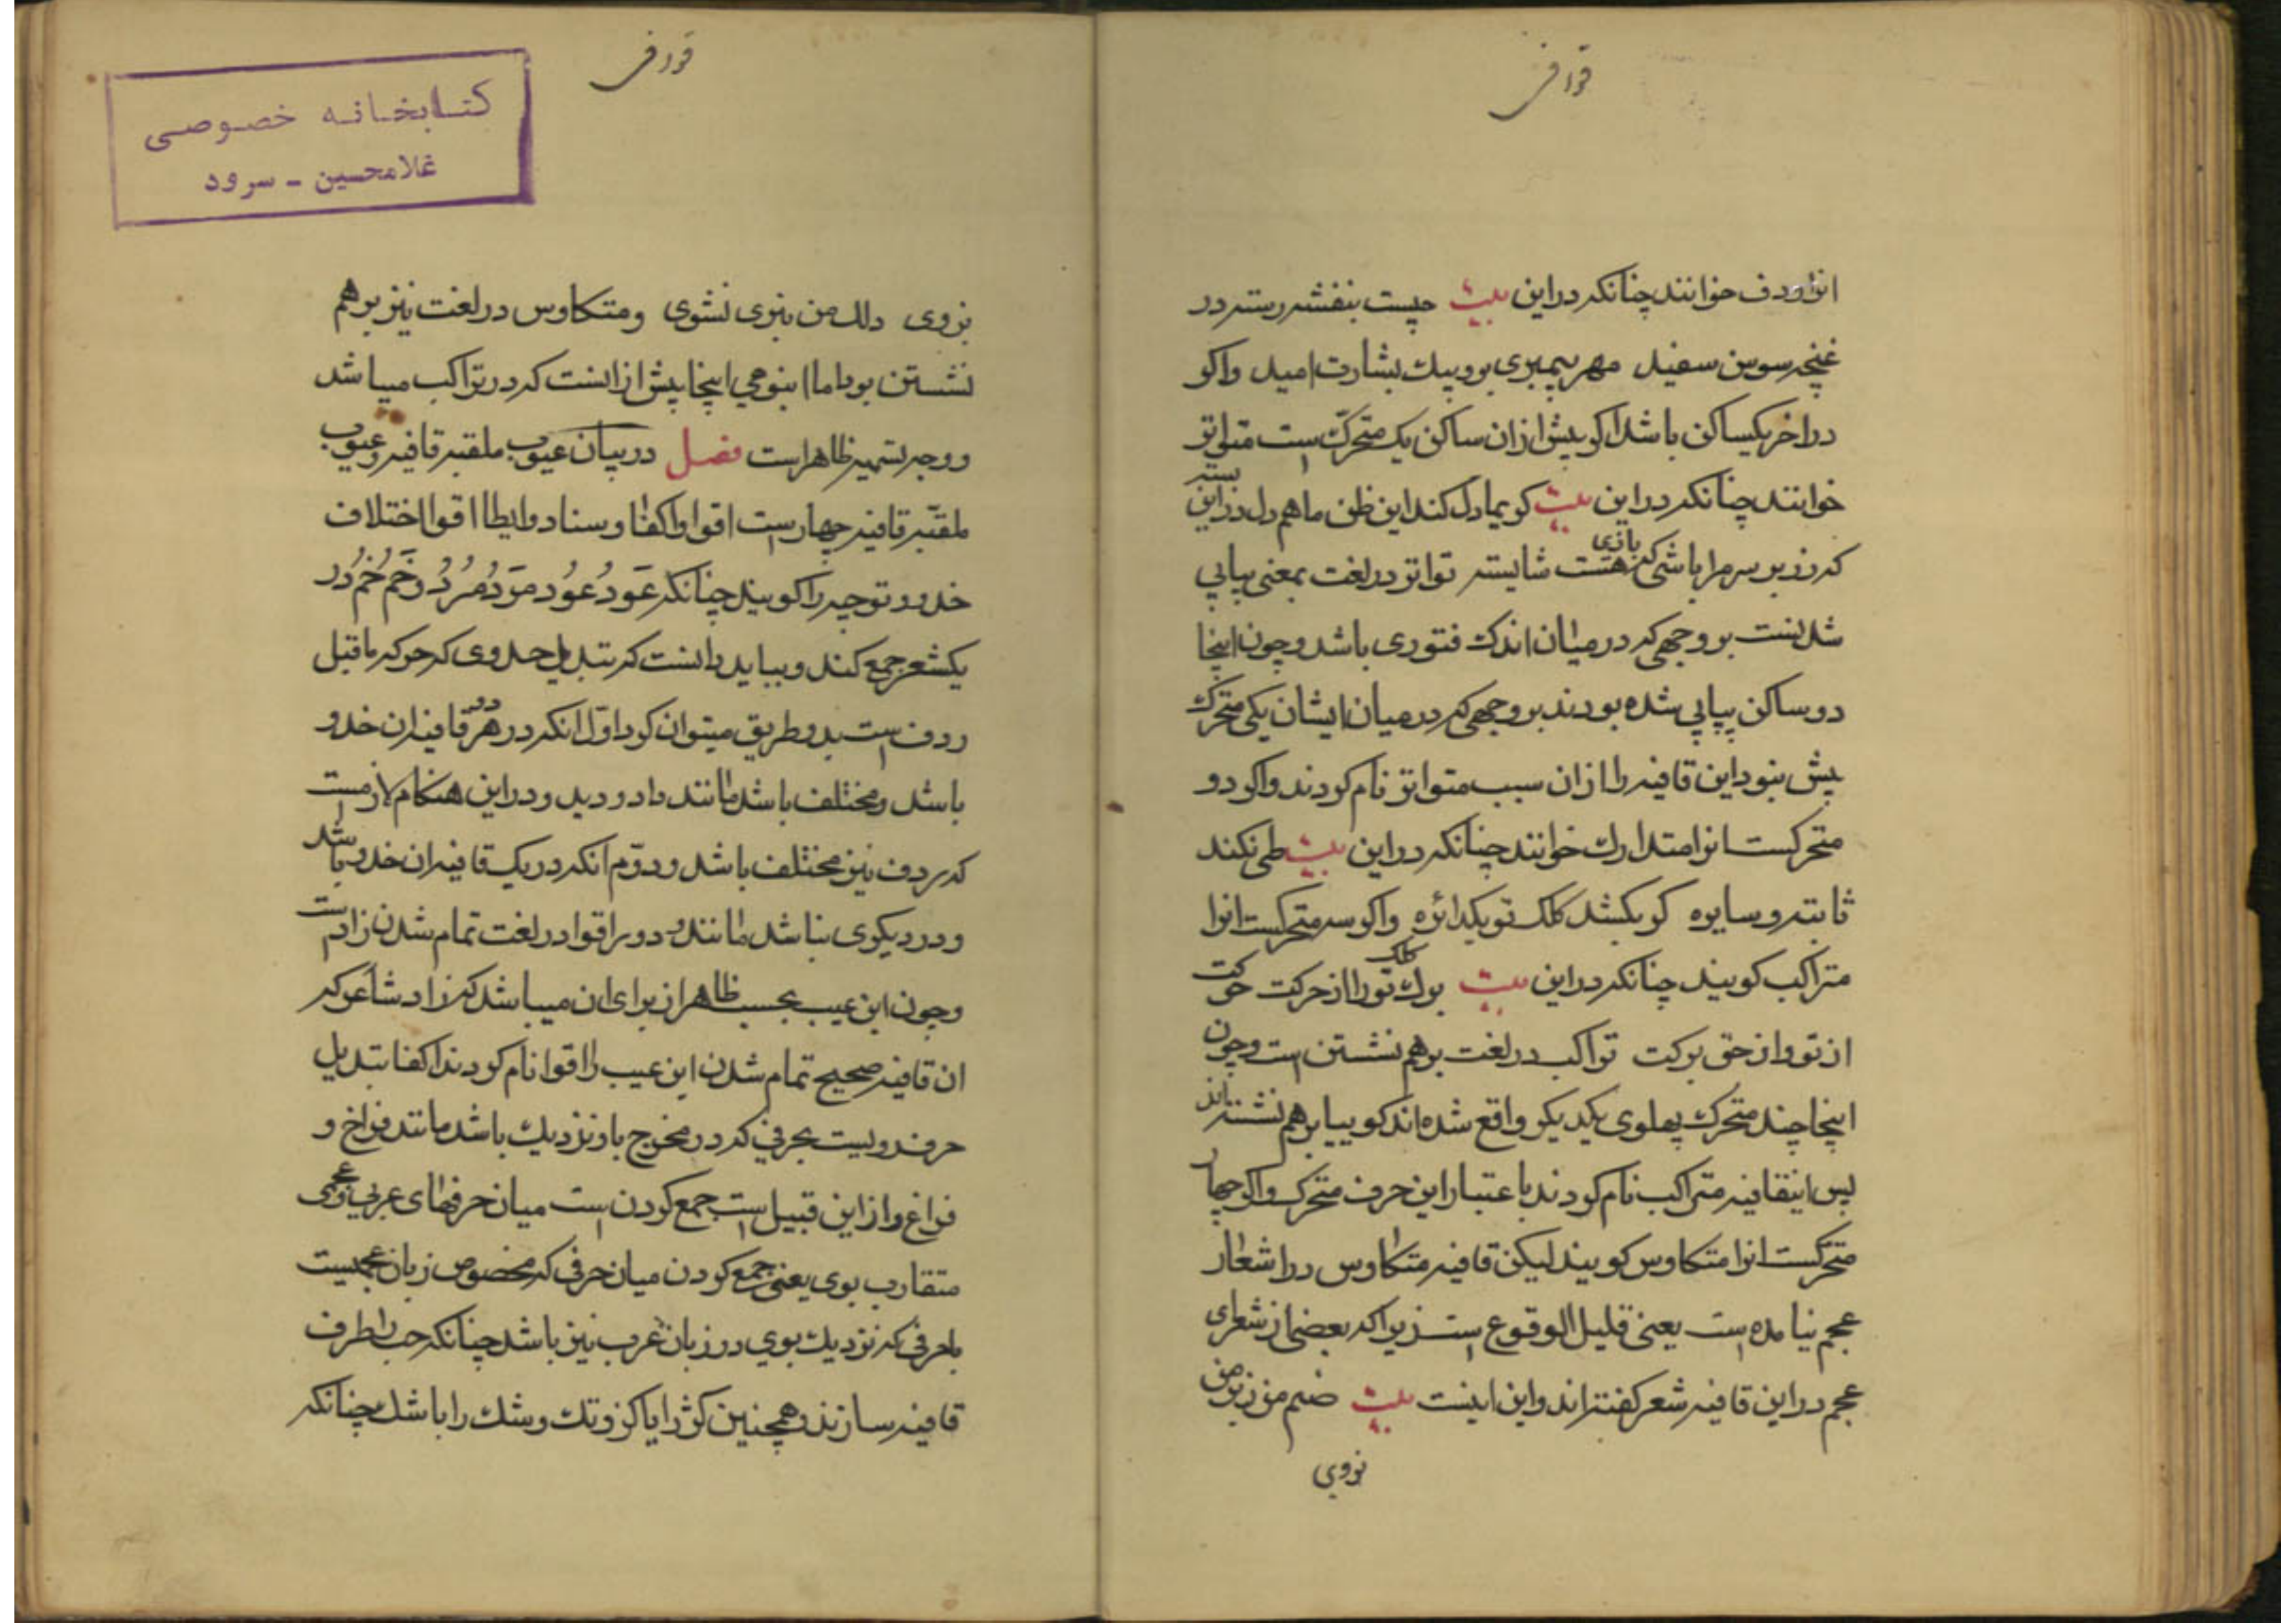 قوافی
انرا ردف خوانند چنانکه دراین بیت چیست بنفشه رسته در
غنچه سوسن سفید مهر پیمبری برو پیک بشارت امید واکر
دراخر یکساکن باشد اکر پیش ازان ساکن یک متحرک است متواتر
خوانند چنانکه دراین بیت کر بما دل کند این ظن ماهم دل دراین بسته
که زر بر سر مرا باشی که بازی هست شایسته تواتر در لغت بمعنی پیاپی
شدنست بر وجهی که در میان اندک فتوری باشد وچون اینجا
دو ساکن پیاپی شده بودند بر وجهی که در میان ایشان یکی متحرک
بیش نبود این قافیه را ازان سبب متواتر نام کردند واکر دو
متحرکست انرا متدارک خوانند چنانکه دراین بیت طی نکند
ثابته وسایره کر بکشد کلک تو یکدائره واکر سه متحرکست انرا
متراکب کویند چنانکه دراین بیت برک کلک تو را از حرکت حرکت
از تو واز حق برکت تراکب در لغت برهم نشستن است وچون
اینجا چند متحرک پهلوی یکدیکر واقع شده اند کوییا برهم نشسته اند
پس اینقافیه متراکب نام کردند باعتبار این حرف متحرک واکر چهار
متحرکست انرا متکاوس کویند لیکن قافیه متکاوس در اشعار
عجم نیامده است یعنی قلیل الوقوع است زیرا که بعضی از شعرای
عجم دراین قافیه شعر کفته اند واین اینست بیت صنم من ز بر من
نروی
قوافی
کتابخانه خصوصی
غلامحسین - سرود
نروی دلک من بنوی نشوی ومتکاوس در لغت نیز برهم
نشستن بود اما انبوهی اینجا پیش ازانست که در تراکب میباشد
ووجه تسمیه ظاهر است فصل در بیان عیوب ملقبه قافیه وعیوب
ملقبه قافیه چهار است اقوا واکفا وسناد وایطا اقوا اختلاف
حذو وتوجیه را کویند چنانکه عَود عُود مَرد مُرد وخَم خُم در
یکشعر جمع کند وبباید دانست که تبدیل حذوی که حرکه ماقبل
ردف است بدو طریق میتوان کرد اول انکه در هر دو قافیه ان حذو
باشد ومختلف باشد مانند داد ودید ودراین هنکام لازم است
که ردف نیز مختلف باشد ودوم انکه در یک قافیه ان حذو باشد
ودر دیکری نباشد مانند ودور اقوا در لغت تمام شدن زاد است
وچون این عیب بحسب ظاهر از برای ان میباشد که زاد شاعر که
ان قافیه صحیح تمام شدن این عیب را اقوا نام کردند اکفا تبدیل
حرف رویست بحرفی که در مخرج باو نزدیک باشد مانند فراخ و
فراغ واز این قبیل است جمع کردن است میان حرفهای عربی وعجمی
متقارب بوی یعنی جمع کردن میان حرفی که مخصوص زبان عجمیست
باحرفی که نزدیک بوی در زبان عرب نیز باشد چنانکه چپ را طرف
قافیه سازند وهمچنین کژ را یا کز وتک وشک را باشد چنانکه